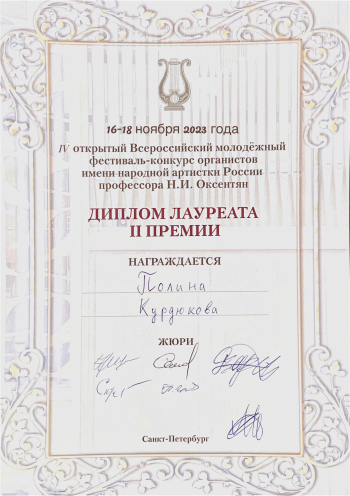 16-18 ноября 2023 года
IV открытый Всероссийский молодёжный
фестиваль-конкурс органистов
имени народной артистки России
профессора Н.И. Оксентян
ДИПЛОМ ЛАУРЕАТА
II ПРЕМИИ
НАГРАЖДАЕТСЯ
Полина
Курдюкова
ЖЮРИ
Санкт-Петербург